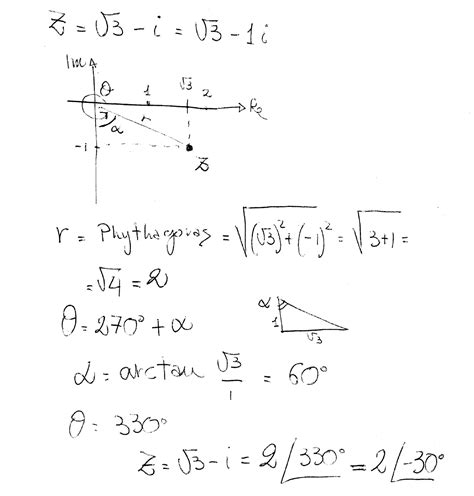 Z = √3 - i = √3 - 1i
Im
θ 1 √3 2 Re
α r
-1
Z
r = Phythagoras = √((√3)² + (-1)²) = √(3+1) =
= √4 = 2
θ = 270° + α
α
1
√3
α = arctan √3/1 = 60°
θ = 330°
Z = √3 - i = 2 /330° = 2 /-30°